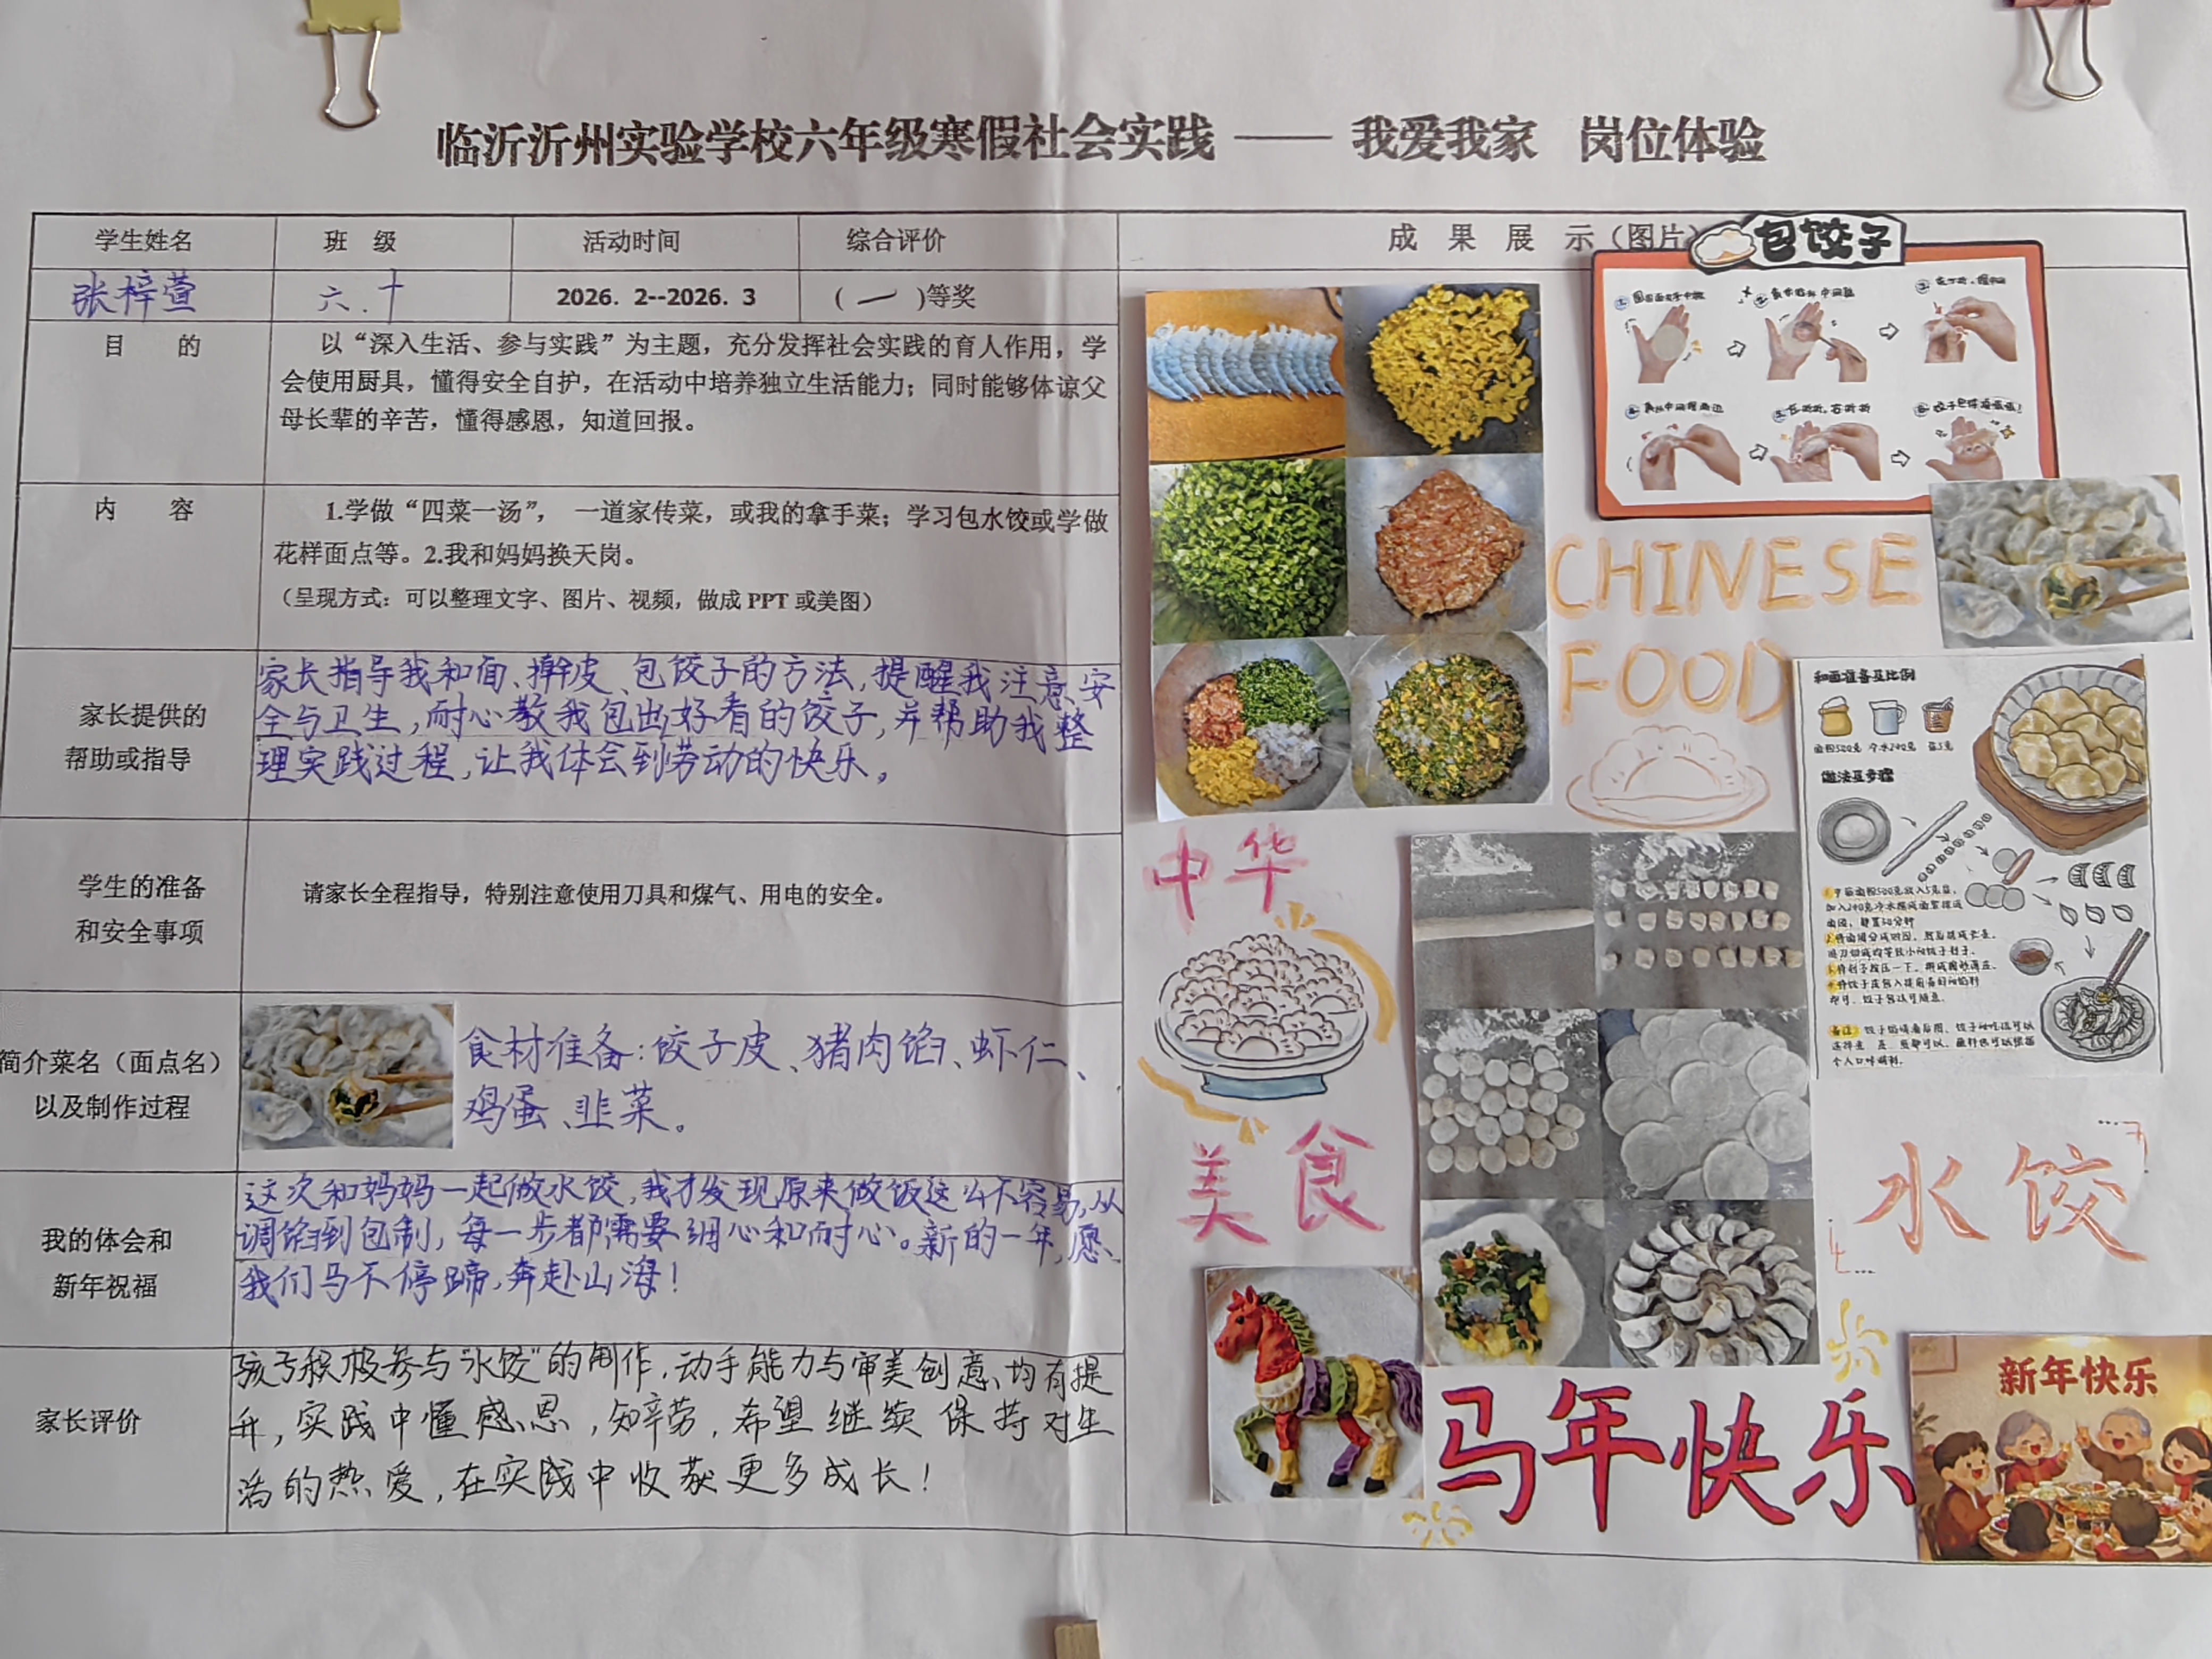 临沂沂州实验学校六年级寒假社会实践 —— 我爱我家 岗位体验
学生姓名 班 级 活动时间 综合评价
张梓萱 六.十 2026. 2--2026. 3 (一)等奖
目 的
以“深入生活、参与实践”为主题，充分发挥社会实践的育人作用，学
会使用厨具，懂得安全自护，在活动中培养独立生活能力；同时能够体谅父
母长辈的辛苦，懂得感恩，知道回报。
内 容
1.学做“四菜一汤”， 一道家传菜，或我的拿手菜；学习包水饺或学做
花样面点等。2.我和妈妈换天岗。
（呈现方式：可以整理文字、图片、视频，做成 PPT 或美图）
家长提供的
帮助或指导
家长指导我和面、擀皮、包饺子的方法，提醒我注意安
全与卫生，耐心教我包出好看的饺子，并帮助我整
理实践过程，让我体会到劳动的快乐。
学生的准备
和安全事项
请家长全程指导，特别注意使用刀具和煤气、用电的安全。
简介菜名（面点名）
以及制作过程
食材准备：饺子皮、猪肉馅、虾仁、
鸡蛋、韭菜。
我的体会和
新年祝福
这次和妈妈一起做水饺，我才发现原来做饭这么不容易，从
调馅到包制，每一步都需要细心和耐心。新的一年，愿
我们马不停蹄，奔赴山海！
家长评价
孩子积极参与“水饺”的制作，动手能力与审美创意均有提
升，实践中懂感恩，知辛劳，希望继续保持对生
活的热爱，在实践中收获更多成长！
成 果 展 示（图片）
包饺子
CHINESE
FOOD
和面准备及比例
面粉500克 冷水240克 盐5克
做法及步骤
中华
美食
水饺
马年快乐
新年快乐